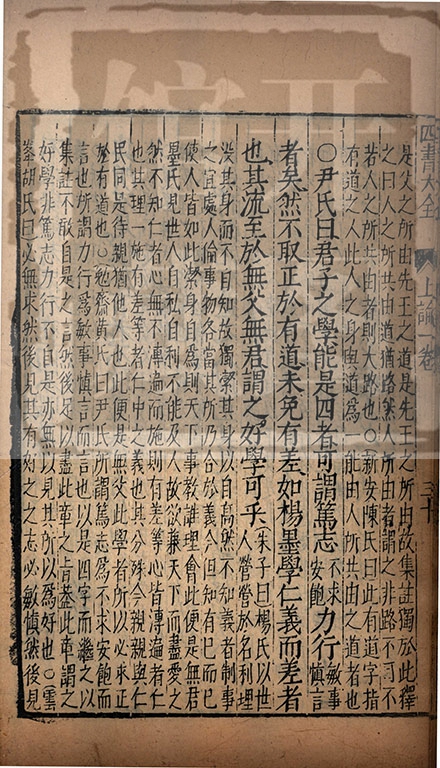 四書大全 上論一卷 三十
是父之所由先王之道是先王之所由故集註獨於此釋
之曰人之所共由道猶路然人所由者謂之非路不可不
若人之所共由者則大路也〇新安陳氏曰此有道字指
有道之人此人之身與道爲一能由人所共由之道者也
〇尹氏曰君子之學能是四者可謂篤志不求安飽力行敏事慎言
者矣然不取正於有道未免有差如楊墨學仁義而差者
也其流至於無父無君謂之好學可乎朱子曰楊氏以世人營營於名利埋
沒其身而不自知故獨潔其身以自高然不知義者制事
之宜處人倫事物各當其所乃合於義今但知有已而已
使人皆如此潔身自爲則天下事教誰理會此便是無君
墨氏見世人自私自利不能及人故欲兼天下而盡愛之
然不知仁者心無不溥遍而施則有差等心皆溥遍者仁
也其理一施有差等者仁中之義也其分殊今親親與仁
民同是待親猶他人也此便是無父此學者所以必來正
於有道也〇勉齋黃氏曰尹氏所謂篤志爲不求安飽而
言也所謂力行爲敏事慎言而言也以是四字而繼之以
集註不敢自是之言然後足以盡此章之旨蓋此章謂之
好學非篤志力行不自是亦無以見其所以爲好也〇雲
峯胡氏曰必無求然後見其有好之之志必敏慎然後見